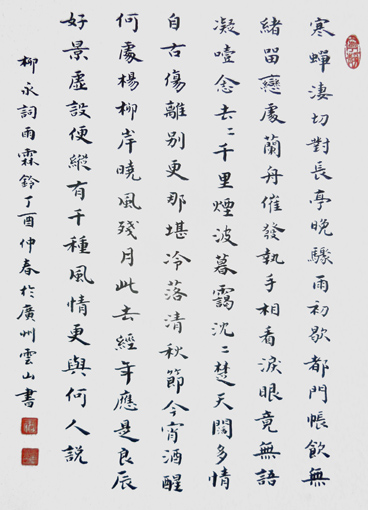 寒蟬淒切對長亭晚驟雨初歇都門帳飲無
緒留戀處蘭舟催發執手相看淚眼竟無語
凝噎念去〻千里煙波暮靄沈〻楚天闊多情
自古傷離別更那堪冷落清秋節今宵酒醒
何處楊柳岸曉風殘月此去經年應是良辰
好景虛設便縱有千種風情更與何人說
柳永詞雨霖鈴丁酉仲春於廣州雲山書